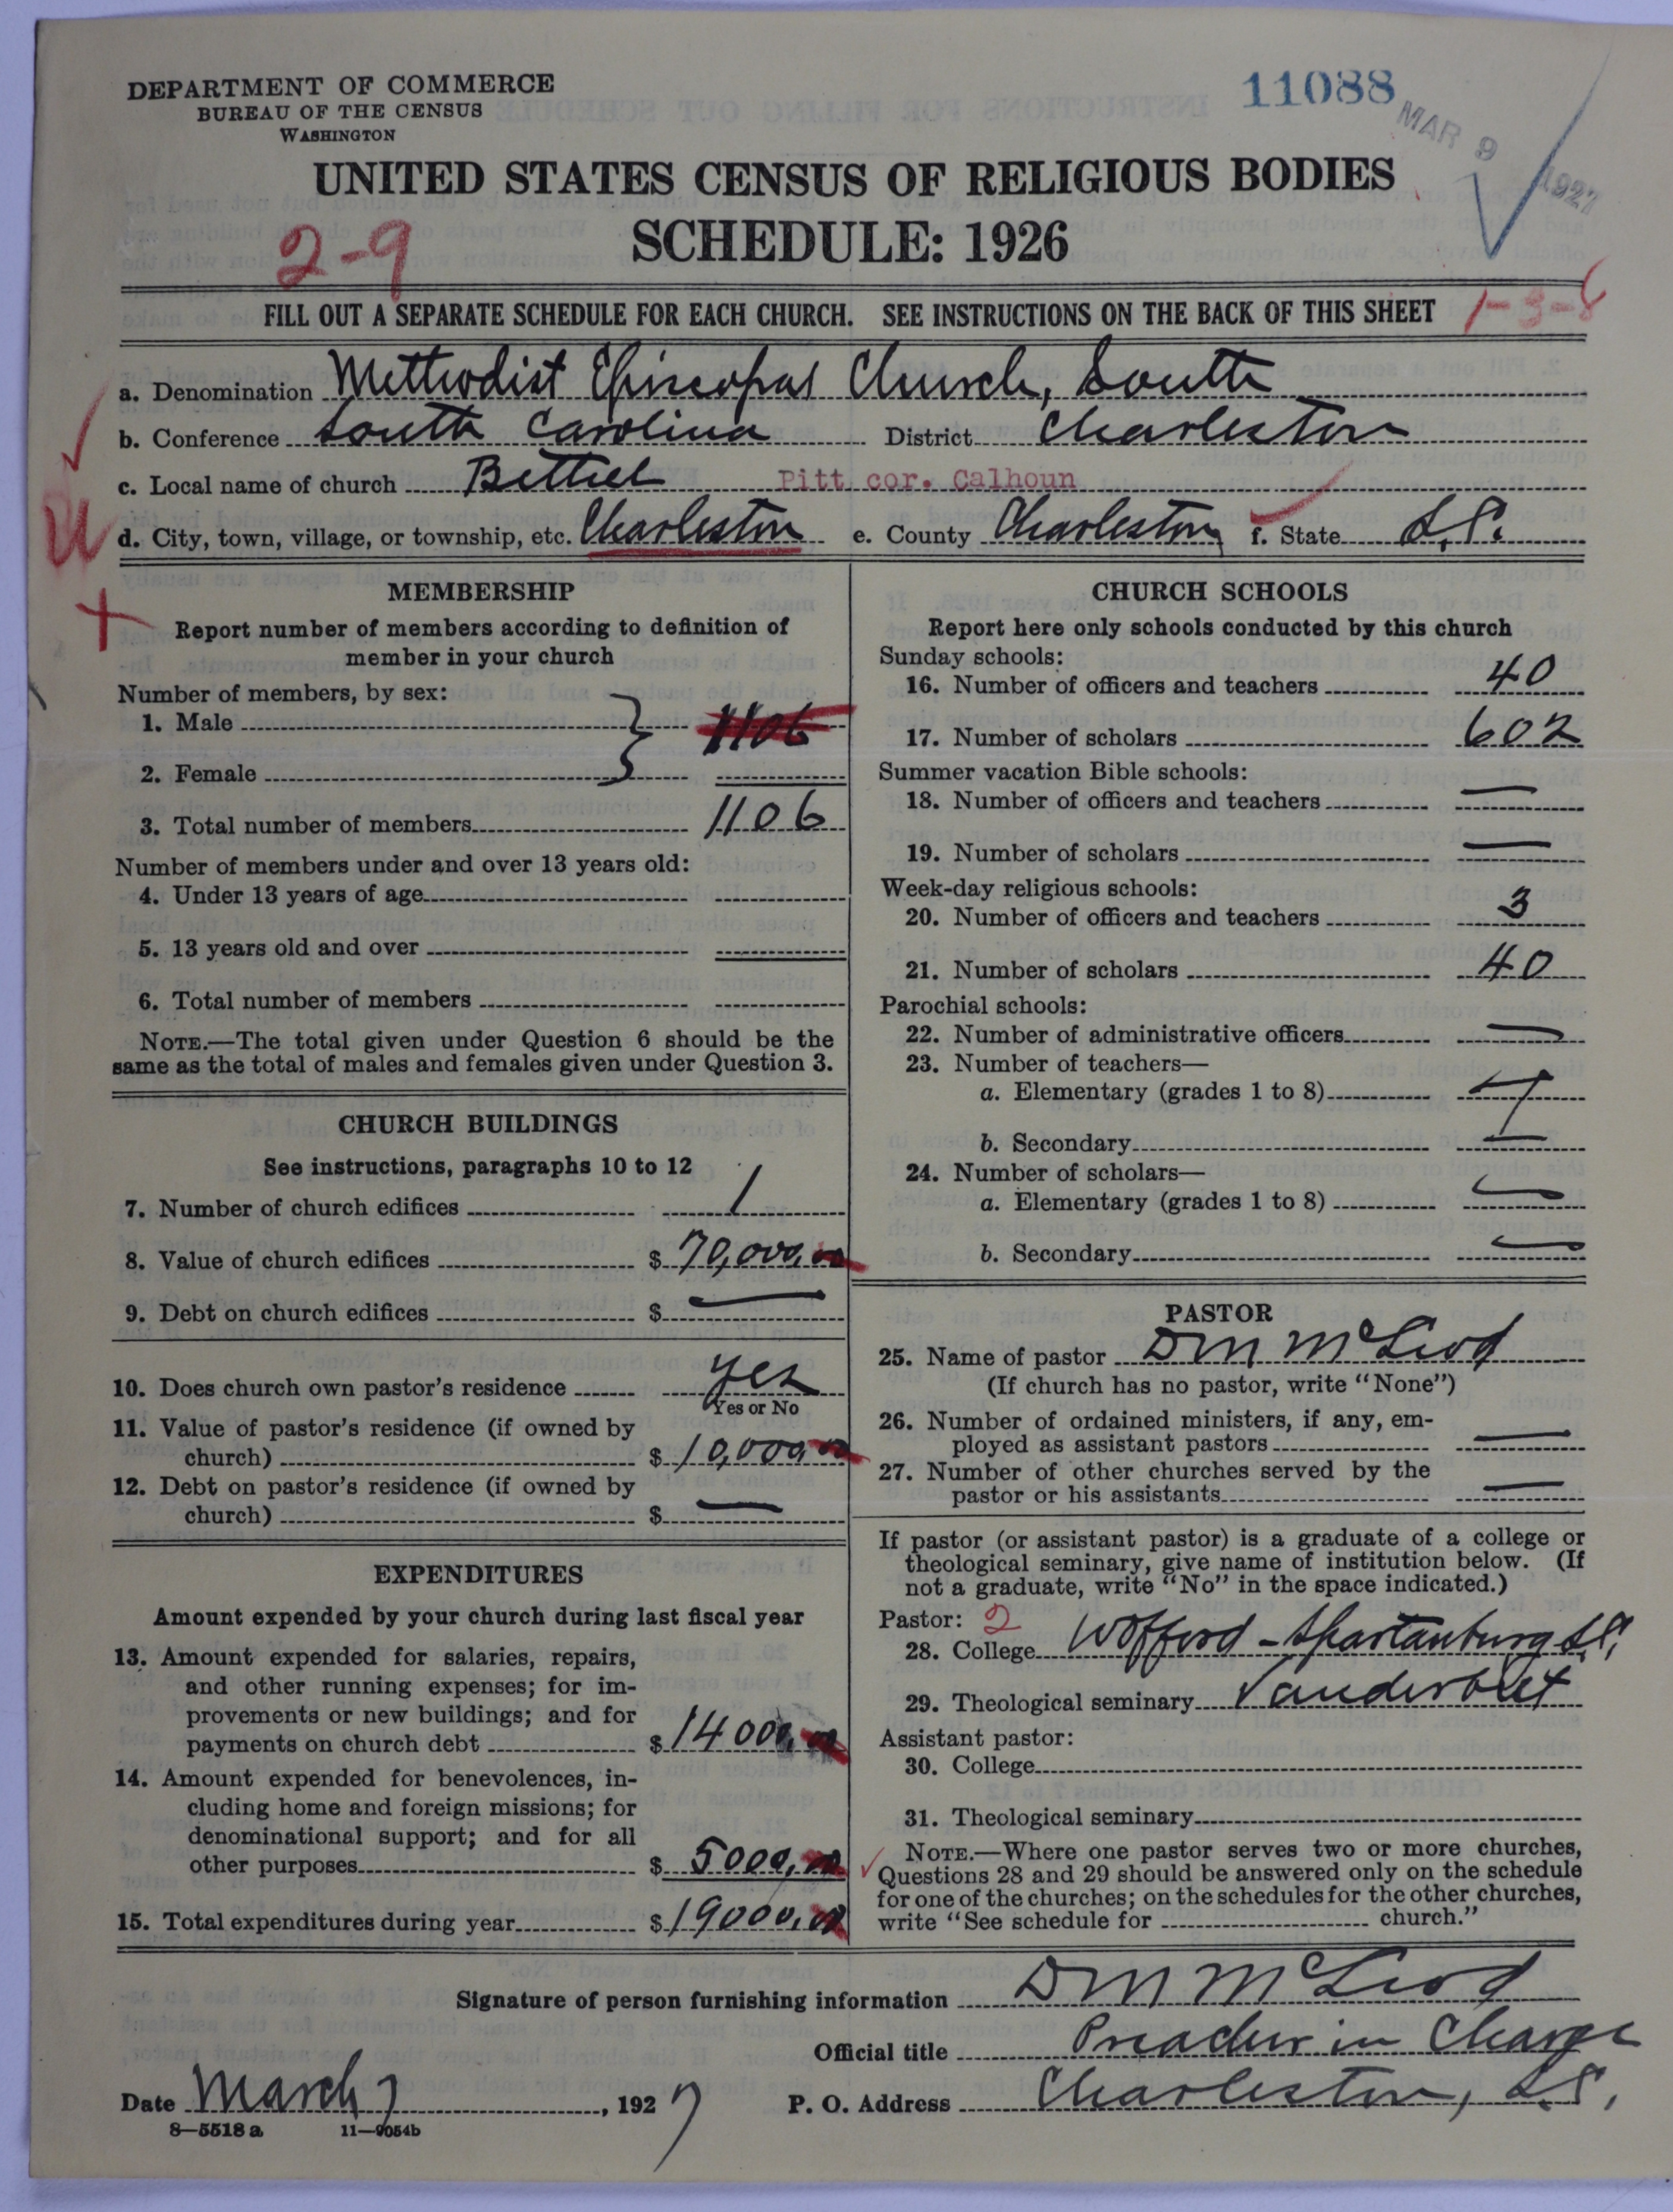 DEPARTMENT OF COMMERCE
BUREAU OF THE CENSUS
WASHINGTON
11088
MAR 9 1927
UNITED STATES CENSUS OF RELIGIOUS BODIES
SCHEDULE: 1926
2-9
FILL OUT A SEPARATE SCHEDULE FOR EACH CHURCH. SEE INSTRUCTIONS ON THE BACK OF THIS SHEET
1-3-8
a. Denomination Methodist Episcopal Church, South
b. Conference South Carolina District Charleston
c. Local name of church Bethel Pitt cor. Calhoun
d. City, town, village, or township, etc. Charleston e. County Charleston f. State S.C.
MEMBERSHIP
Report number of members according to definition of
member in your church
Number of members, by sex:
1. Male 1106
2. Female
3. Total number of members 1106
Number of members under and over 13 years old:
4. Under 13 years of age
5. 13 years old and over
6. Total number of members
NOTE.—The total given under Question 6 should be the
same as the total of males and females given under Question 3.
CHURCH BUILDINGS
See instructions, paragraphs 10 to 12
7. Number of church edifices 1
8. Value of church edifices $ 70,000.00
9. Debt on church edifices $ —
10. Does church own pastor's residence Yes
Yes or No
11. Value of pastor's residence (if owned by
church) $ 10,000.00
12. Debt on pastor's residence (if owned by
church) $ —
EXPENDITURES
Amount expended by your church during last fiscal year
13. Amount expended for salaries, repairs,
and other running expenses; for im-
provements or new buildings; and for
payments on church debt $ 14000.00
14. Amount expended for benevolences, in-
cluding home and foreign missions; for
denominational support; and for all
other purposes $ 5000.00
15. Total expenditures during year $ 19000.00
CHURCH SCHOOLS
Report here only schools conducted by this church
Sunday schools:
16. Number of officers and teachers 40
17. Number of scholars 602
Summer vacation Bible schools:
18. Number of officers and teachers —
19. Number of scholars —
Week-day religious schools:
20. Number of officers and teachers 3
21. Number of scholars 40
Parochial schools:
22. Number of administrative officers —
23. Number of teachers—
a. Elementary (grades 1 to 8) —
b. Secondary —
24. Number of scholars—
a. Elementary (grades 1 to 8) —
b. Secondary —
PASTOR
25. Name of pastor D M McLeod
(If church has no pastor, write "None")
26. Number of ordained ministers, if any, em-
ployed as assistant pastors —
27. Number of other churches served by the
pastor or his assistants —
If pastor (or assistant pastor) is a graduate of a college or
theological seminary, give name of institution below. (If
not a graduate, write "No" in the space indicated.)
Pastor: 2
28. College Wofford - Spartanburg S.C.
29. Theological seminary Vanderbilt
Assistant pastor:
30. College
31. Theological seminary
NOTE.—Where one pastor serves two or more churches,
Questions 28 and 29 should be answered only on the schedule
for one of the churches; on the schedules for the other churches,
write "See schedule for church."
Signature of person furnishing information D M McLeod
Official title Preacher in Charge
Date March 7, 1927 P. O. Address Charleston, S.C.
8—5518 a 11—9054b